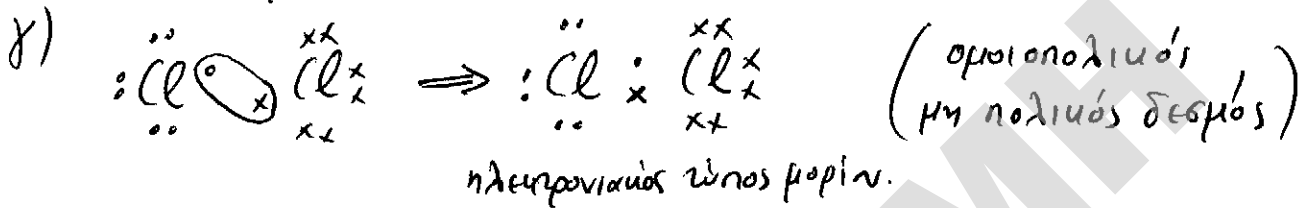 γ)
:Cl ∘ x Cl ⟹ :Cl : Cl
(ομοιοπολικός
μη πολικός δεσμός)
ηλεκτρονιακός τύπος μορίων.
ΜΗ